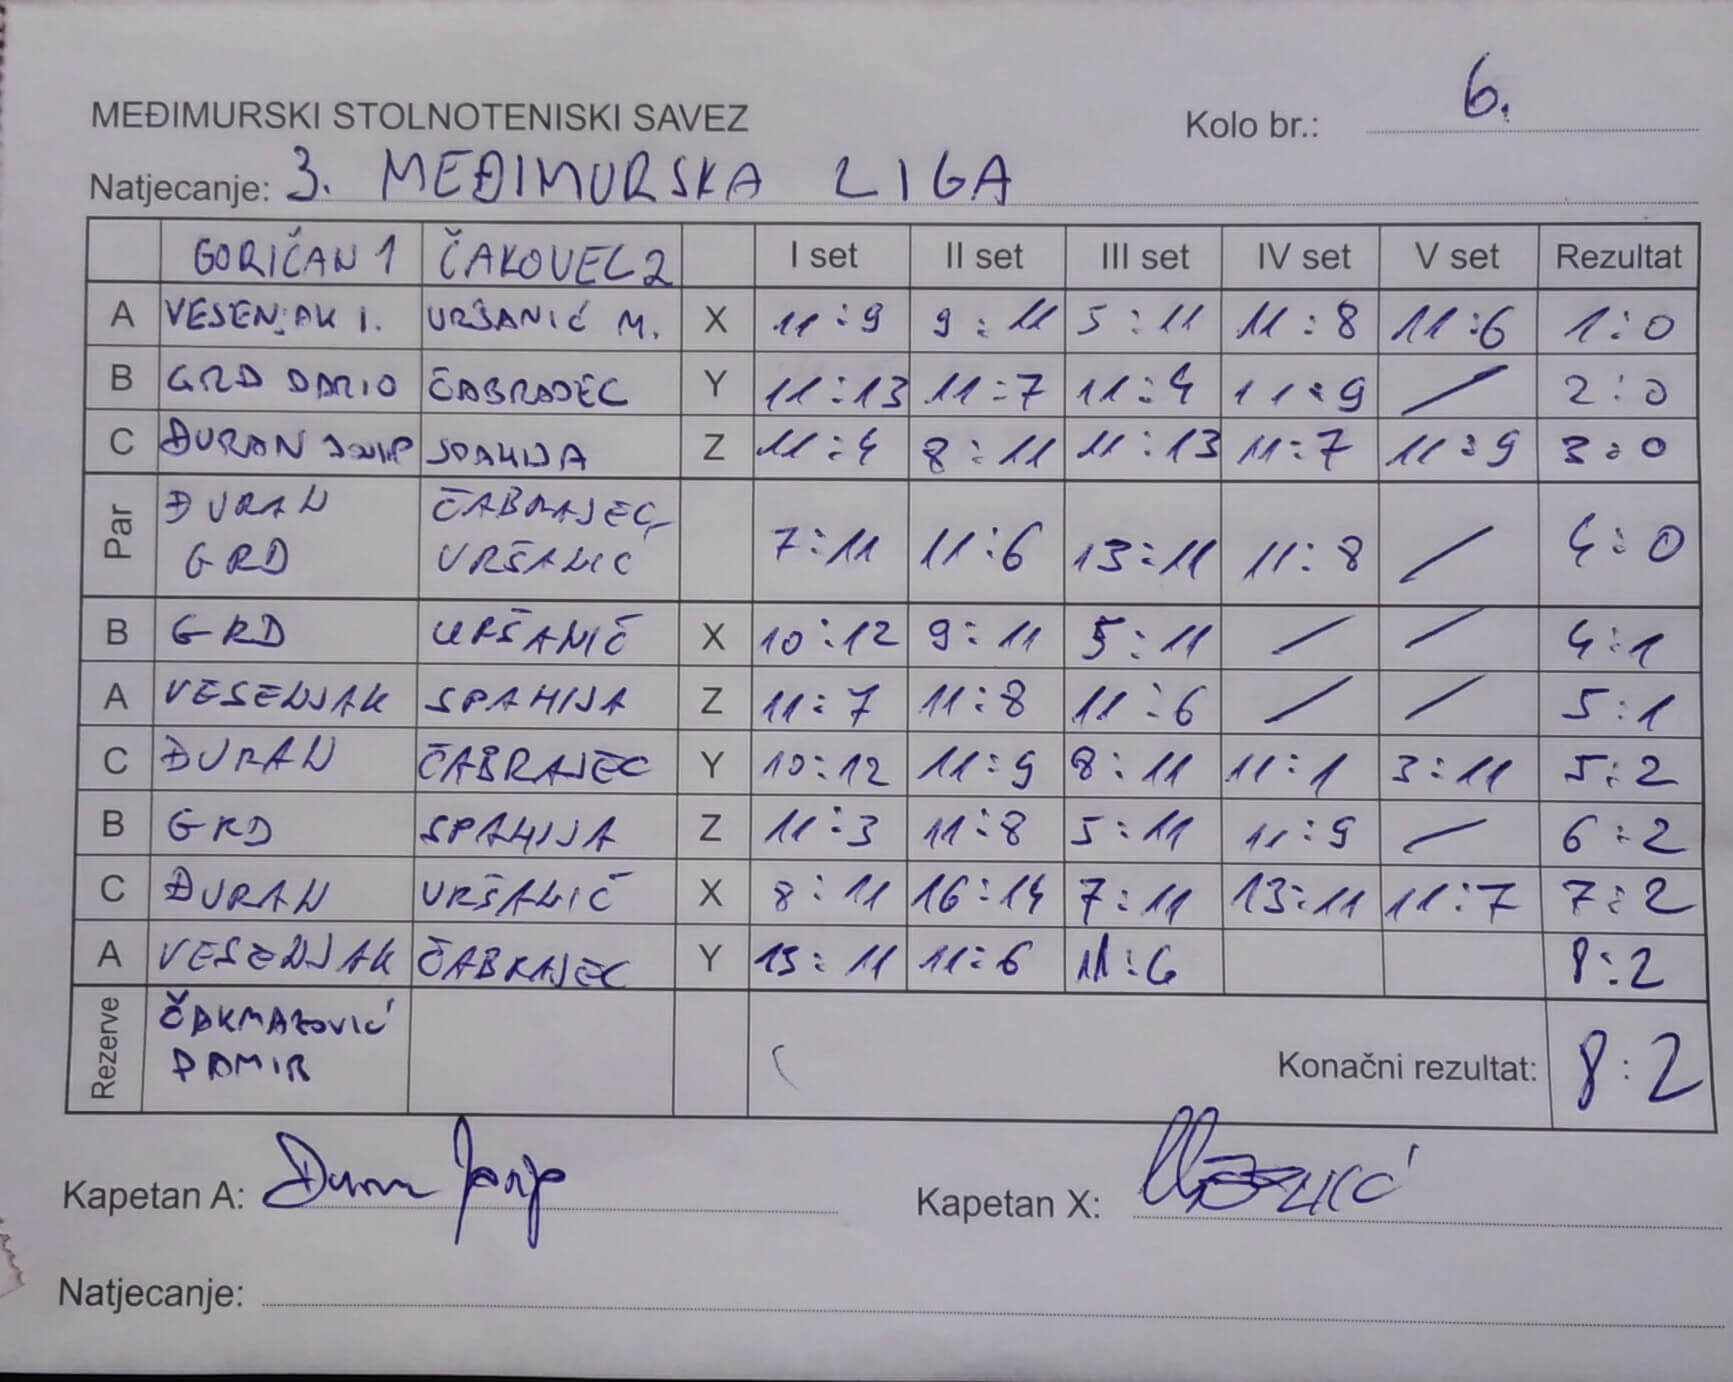 MEĐIMURSKI STOLNOTENISKI SAVEZ Kolo br.: 6.
Natjecanje: 3. MEĐIMURSKA LIGA
GORIČAN 1 ČAKOVEC 2 I set II set III set IV set V set Rezultat
A VESENJAK I. URŠANIĆ M. X 11:9 9:11 5:11 11:8 11:6 1:0
B GRD DARIO ČABRAJEC Y 11:13 11:7 11:4 11:9 / 2:0
C ĐURAN JOSIP SPAHIJA Z 11:4 8:11 11:13 11:7 11:9 3:0
Par ĐURAN ČABRAJEC,
GRD URŠANIĆ 7:11 11:6 13:11 11:8 / 4:0
B GRD URŠANIČ X 10:12 9:11 5:11 / / 4:1
A VESENJAK SPAHIJA Z 11:7 11:8 11:6 / / 5:1
C ĐURAN ČABRAJEC Y 10:12 11:9 8:11 11:1 3:11 5:2
B GRD SPAHIJA Z 11:3 11:8 5:11 11:9 / 6:2
C ĐURAN URŠANIČ X 8:11 16:14 7:11 13:11 11:7 7:2
A VESENJAK ČABRAJEC Y 11:6 11:6 8:2
Rezerve ČAKMAZOVIĆ
DAMIR Konačni rezultat: 8:2
Kapetan A: Kapetan X:
Natjecanje: